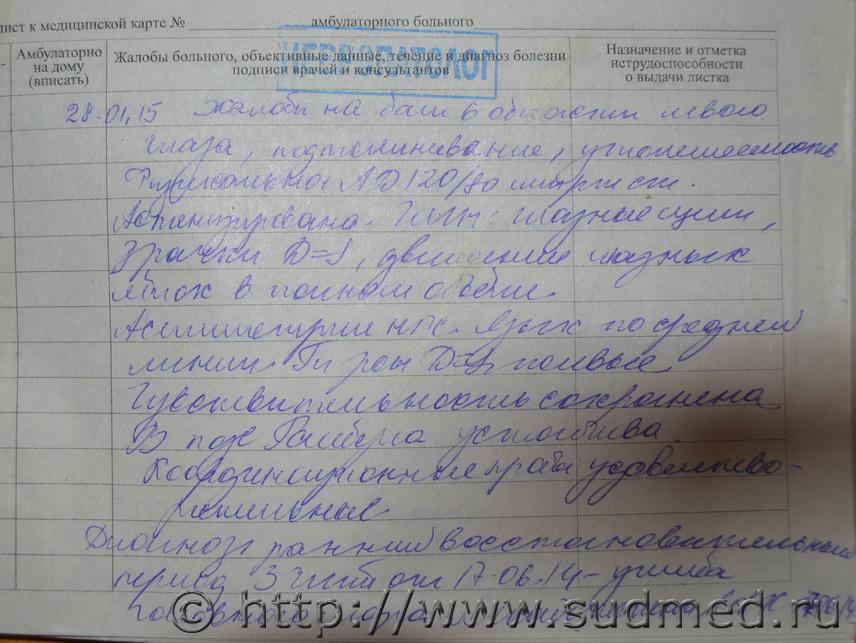 лист к медицинской карте № амбулаторного больного
НЕВРОПАТОЛОГ
Амбулаторно
на дому
(вписать)
Жалобы больного, объективные данные, течение и диагноз болезни
подписи врачей и консультантов
Назначение и отметка
нетрудоспособности
о выдачи листка
28.01.15 Жалобы на боли в области левого
глаза, подташнивание, утомляемость
АД 120/80 мм рт ст.
Астенизирована. глазные щели,
зрачки D=S, движения глазных
яблок в полном объёме.
Асимметрии нет. Язык по средней
линии. D=S
Чувствительность сохранена
В позе Ромберга устойчива.
Координационные пробы удовлетво-
рительные
Диагноз: ранний восстановительный
период ЗЧМТ от 17.06.14 - ушиба
головного мозга
© http://www.sudmed.ru